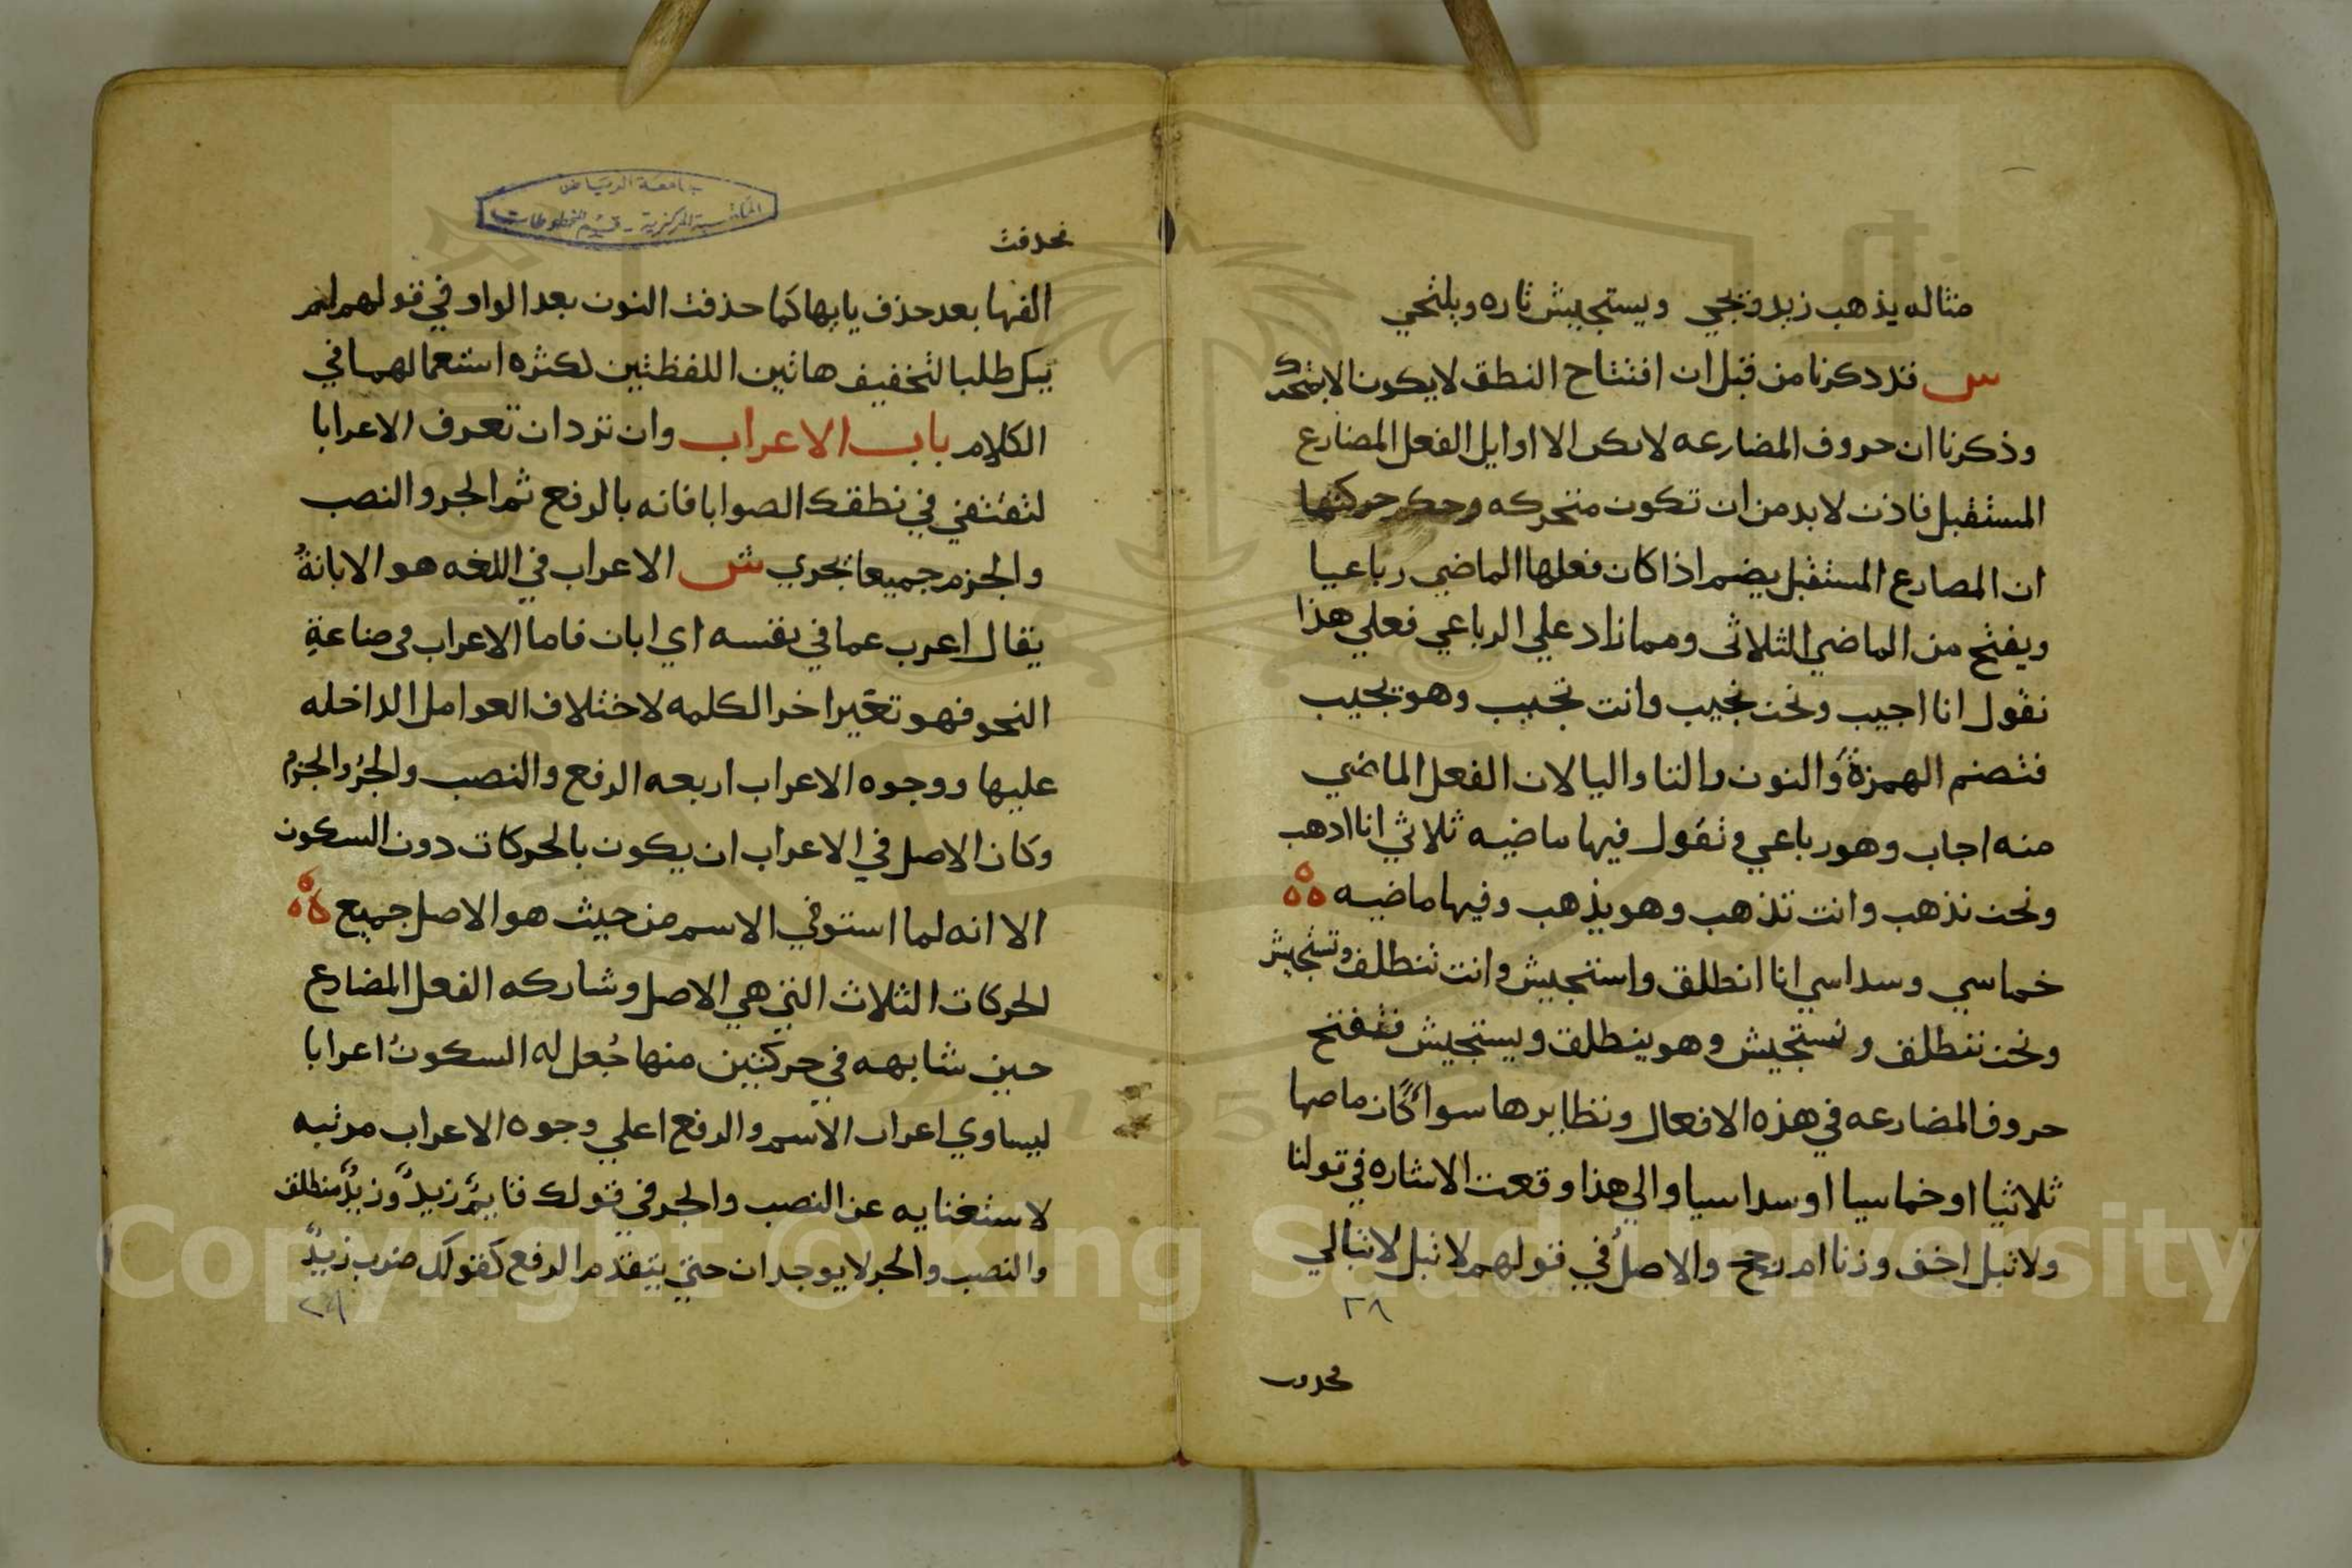 مثاله يذهب زيد ويجي ويستجيش تاره ويلتجي
ش قد ذكرنا من قبل ان افتتاح النطق لا يكون الا بمتحرك
وذكرنا ان حروف المضارعه لا تكن الا اوايل الفعل المضارع
المستقبل فاذن لا بد من ان تكون متحركه وحكم حركتها
ان المضارع المستقبل يضم اذا كان فعلها الماضي رباعيا
ويفتح من الماضي الثلاثي ومما زاد علي الرباعي فعلي هذا
نقول انا اجيب ونحن نجيب وانت تجيب وهو يجيب
فتضم الهمزةَ والنون والتا واليا لان الفعل الماضي
منه اجاب وهو رباعي وتقول فيها ماضيه ثلاثي انا اذهب
ونحن نذهب وانت تذهب وهو يذهب وفيها ماضيه
خماسي وسداسي انا انطلق واستجيش وانت تنطلق وتستجيش
ونحن ننطلق ونستجيش وهو ينطلق ويستجيش فتفتح
حروف المضارعه في هذه الافعال ونظايرها سواً كان ماضيها
ثلاثيا او خماسيا او سداسيا والي هذا وقعت الاشاره في قولنا
ولا تبل اخف وزنا ام رجح والاصلُ في قولهم لا تبل لا تبالي
٢٨
فحذفت
جامعة الرياض
المكتبة المركزية - قسم المخطوطات
فحذفت
الفها بعد حذف يايها كما حذفت النون بعد الواو في قولهم لم
يك طلبا لتخفيف هاتين اللفظتين لكثره استعمالهما في
الكلام باب الاعراب وان ترد ان تعرف الاعرابا
لتقتفي في نطقك الصوابا فانه بالرفع ثم الجر والنصب
والجزم جميعا يجري ش الاعراب في اللغه هو الابانةُ
يقال اعرب عما في نفسه اي ابان فاما الاعراب في صناعةِ
النحو فهو تغيّر اخر الكلمه لاختلاف العوامل الداخله
عليها ووجوه الاعراب اربعه الرفع والنصب والجرُ والجزم
وكان الاصل في الاعراب ان يكون بالحركات دون السكون
الا انه لما استوفي الاسم من حيث هو الاصل جميع
الحركات الثلاث التي هي الاصل وشاركه الفعل المضارع
حين شابهه في حركتين منها جُعل له السكونُ اعرابا
ليساوي اعراب الاسم والرفع اعلي وجوه الاعراب مرتبه
لاستغنايه عن النصب والجر في قولك قايمٌ زيدٌ وزيدٌ منطلق
والنصب والجر لا يوجدان حتي يتقدم الرفع كقولك ضرب زيدٌ
٢٩
Copyright © King Saud University